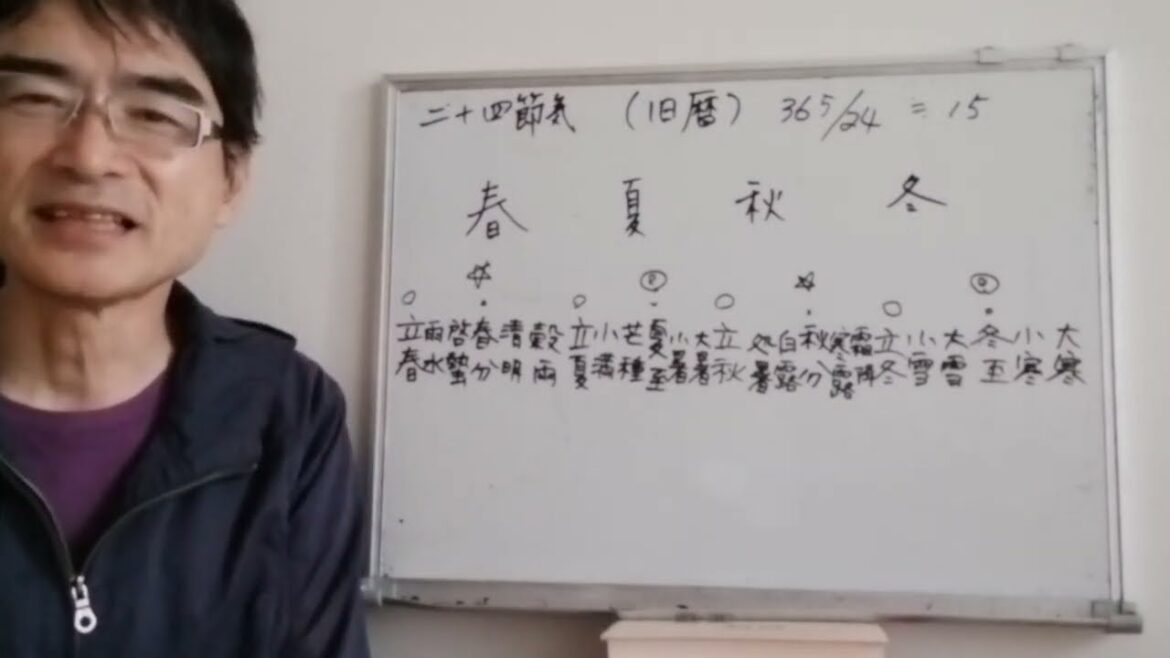 二十四節気 (旧暦) 365/24 = 15
春 夏 秋 冬
立春 雨水 啓蟄 春分 清明 穀雨 立夏 小満 芒種 夏至 小暑 大暑 立秋 処暑 白露 秋分 寒露 霜降 立冬 小雪 大雪 冬至 小寒 大寒